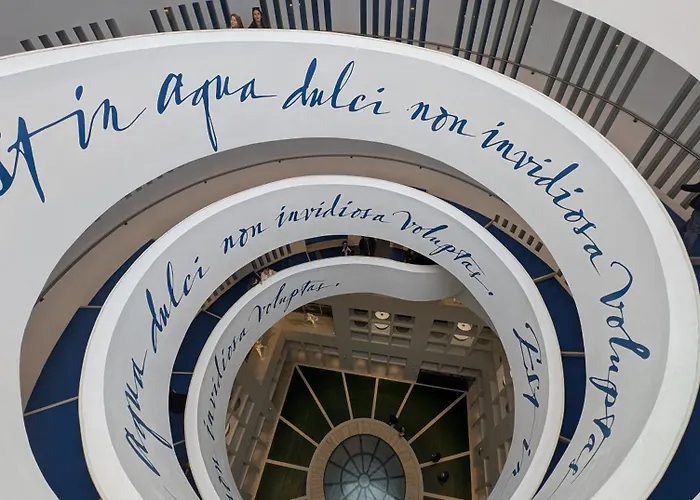 st in aqua dulci non invidiosa voluptas
aqua dulci non invidiosa voluptas.
Est in
invidiosa voluptas.